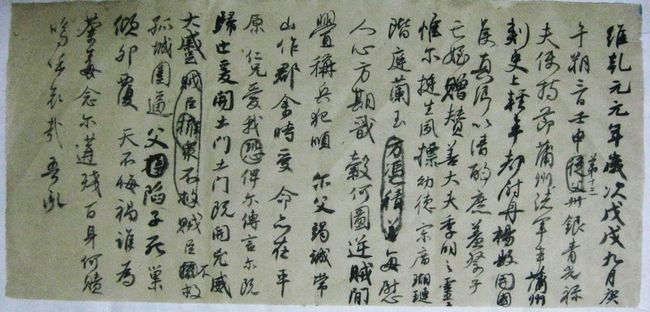 維乾元元年歲次戊戌九月庚
午朔三日壬申第十三從父銀青光祿
夫使持節蒲州諸軍事蒲州
刺史上輕車都尉丹楊縣開國
侯真卿以清酌庶羞祭于
亡姪贈贊善大夫季明之靈
惟尔挺生夙標幼德宗廟瑚璉
階庭蘭玉方憑積善每慰
人心方期戩穀何圖逆賊間
釁稱兵犯順尔父竭誠常
山作郡余時受命亦在平
原仁兄愛我恐俾尔傳言尔既
歸止爰開土門土門既開凶威
大蹙賊臣擁眾不救賊臣不救
孤城圍逼父陷子死巢
傾卵覆天不悔禍誰為
荼毒念尔遘殘百身何贖
嗚呼哀哉吾承